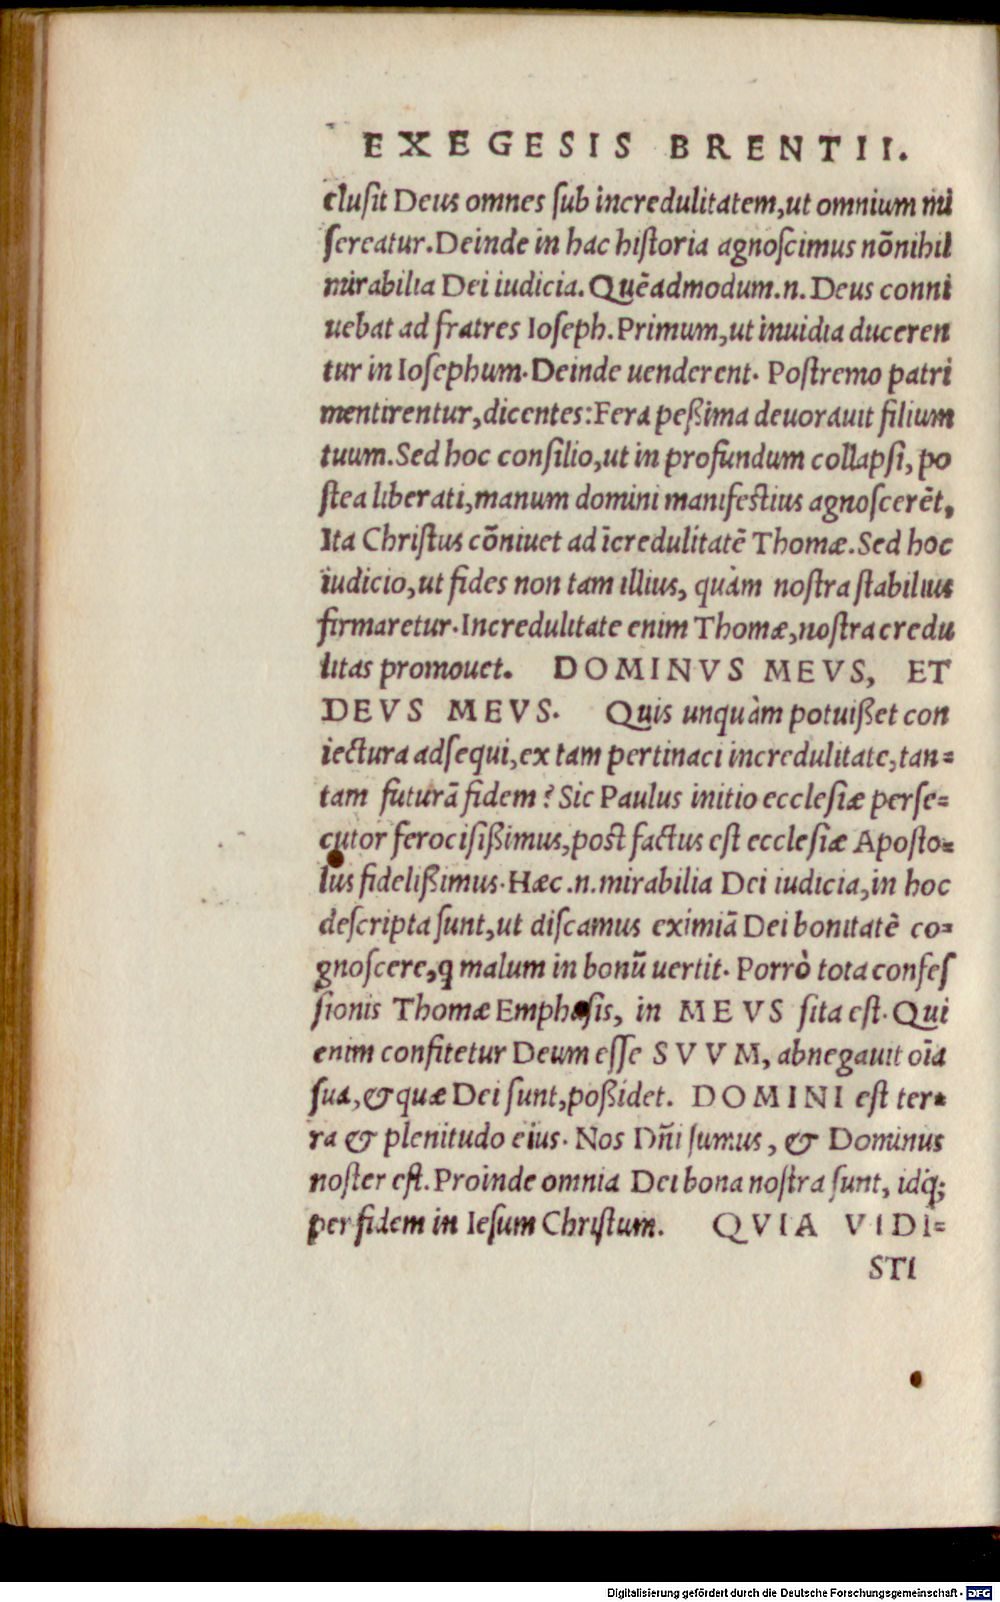 EXEGESIS BRENTII.
clusit Deus omnes sub incredulitatem,ut omnium mi
sereatur.Deinde in hac historia agnoscimus nōnihil
mirabilia Dei iudicia. Quēadmodum.n. Deus conni
uebat ad fratres Ioseph. Primum,ut inuidia duceren
tur in Iosephum. Deinde uenderent. Postremo patri
mentirentur,dicentes:Fera peßima deuorauit filium
tuum.Sed hoc consilio,ut in profundum collapsi, po
stea liberati,manum domini manifestius agnoscerēt,
Ita Christus cōniuet ad īcredulitatē Thomæ.Sed hoc
iudicio,ut fides non tam illius, quàm nostra stabilius
firmaretur.Incredulitate enim Thomæ,nostra credu
litas promouet. DOMINVS MEVS, ET
DEVS MEVS. Quis unquàm potuißet con
iectura adsequi,ex tam pertinaci incredulitate,tan=
tam futurā fidem? Sic Paulus initio ecclesiæ perse=
cutor ferocisißimus,post factus est ecclesiæ Aposto=
lus fidelißimus. Hæc.n.mirabilia Dei iudicia,in hoc
descripta sunt,ut discamus eximiā Dei bonitatē co=
gnoscere,q malum in bonū uertit. Porrò tota confes
sionis Thomæ Emphasis, in MEVS sita est. Qui
enim confitetur Deum esse SVVM, abnegauit oīa
sua, & quæ Dei sunt,poßidet. DOMINI est ter=
ra & plenitudo eius. Nos Dn̄i sumus, & Dominus
noster est. Proinde omnia Dei bona nostra sunt, idq́;
per fidem in Iesum Christum. QVIA VIDI=
STI
Digitalisierung gefördert durch die Deutsche Forschungsgemeinschaft - DFG